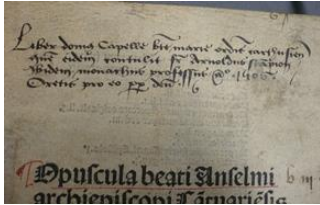 Liber domus Capelle bte marie ordis carthusien
que eidem contulit fr Arnoldus
ibidem monachus professus Ao 1506
Oretis pro eo ad dnm
Opuscula beati Anselmi
archiepiscopi Cantuariesis
b iii